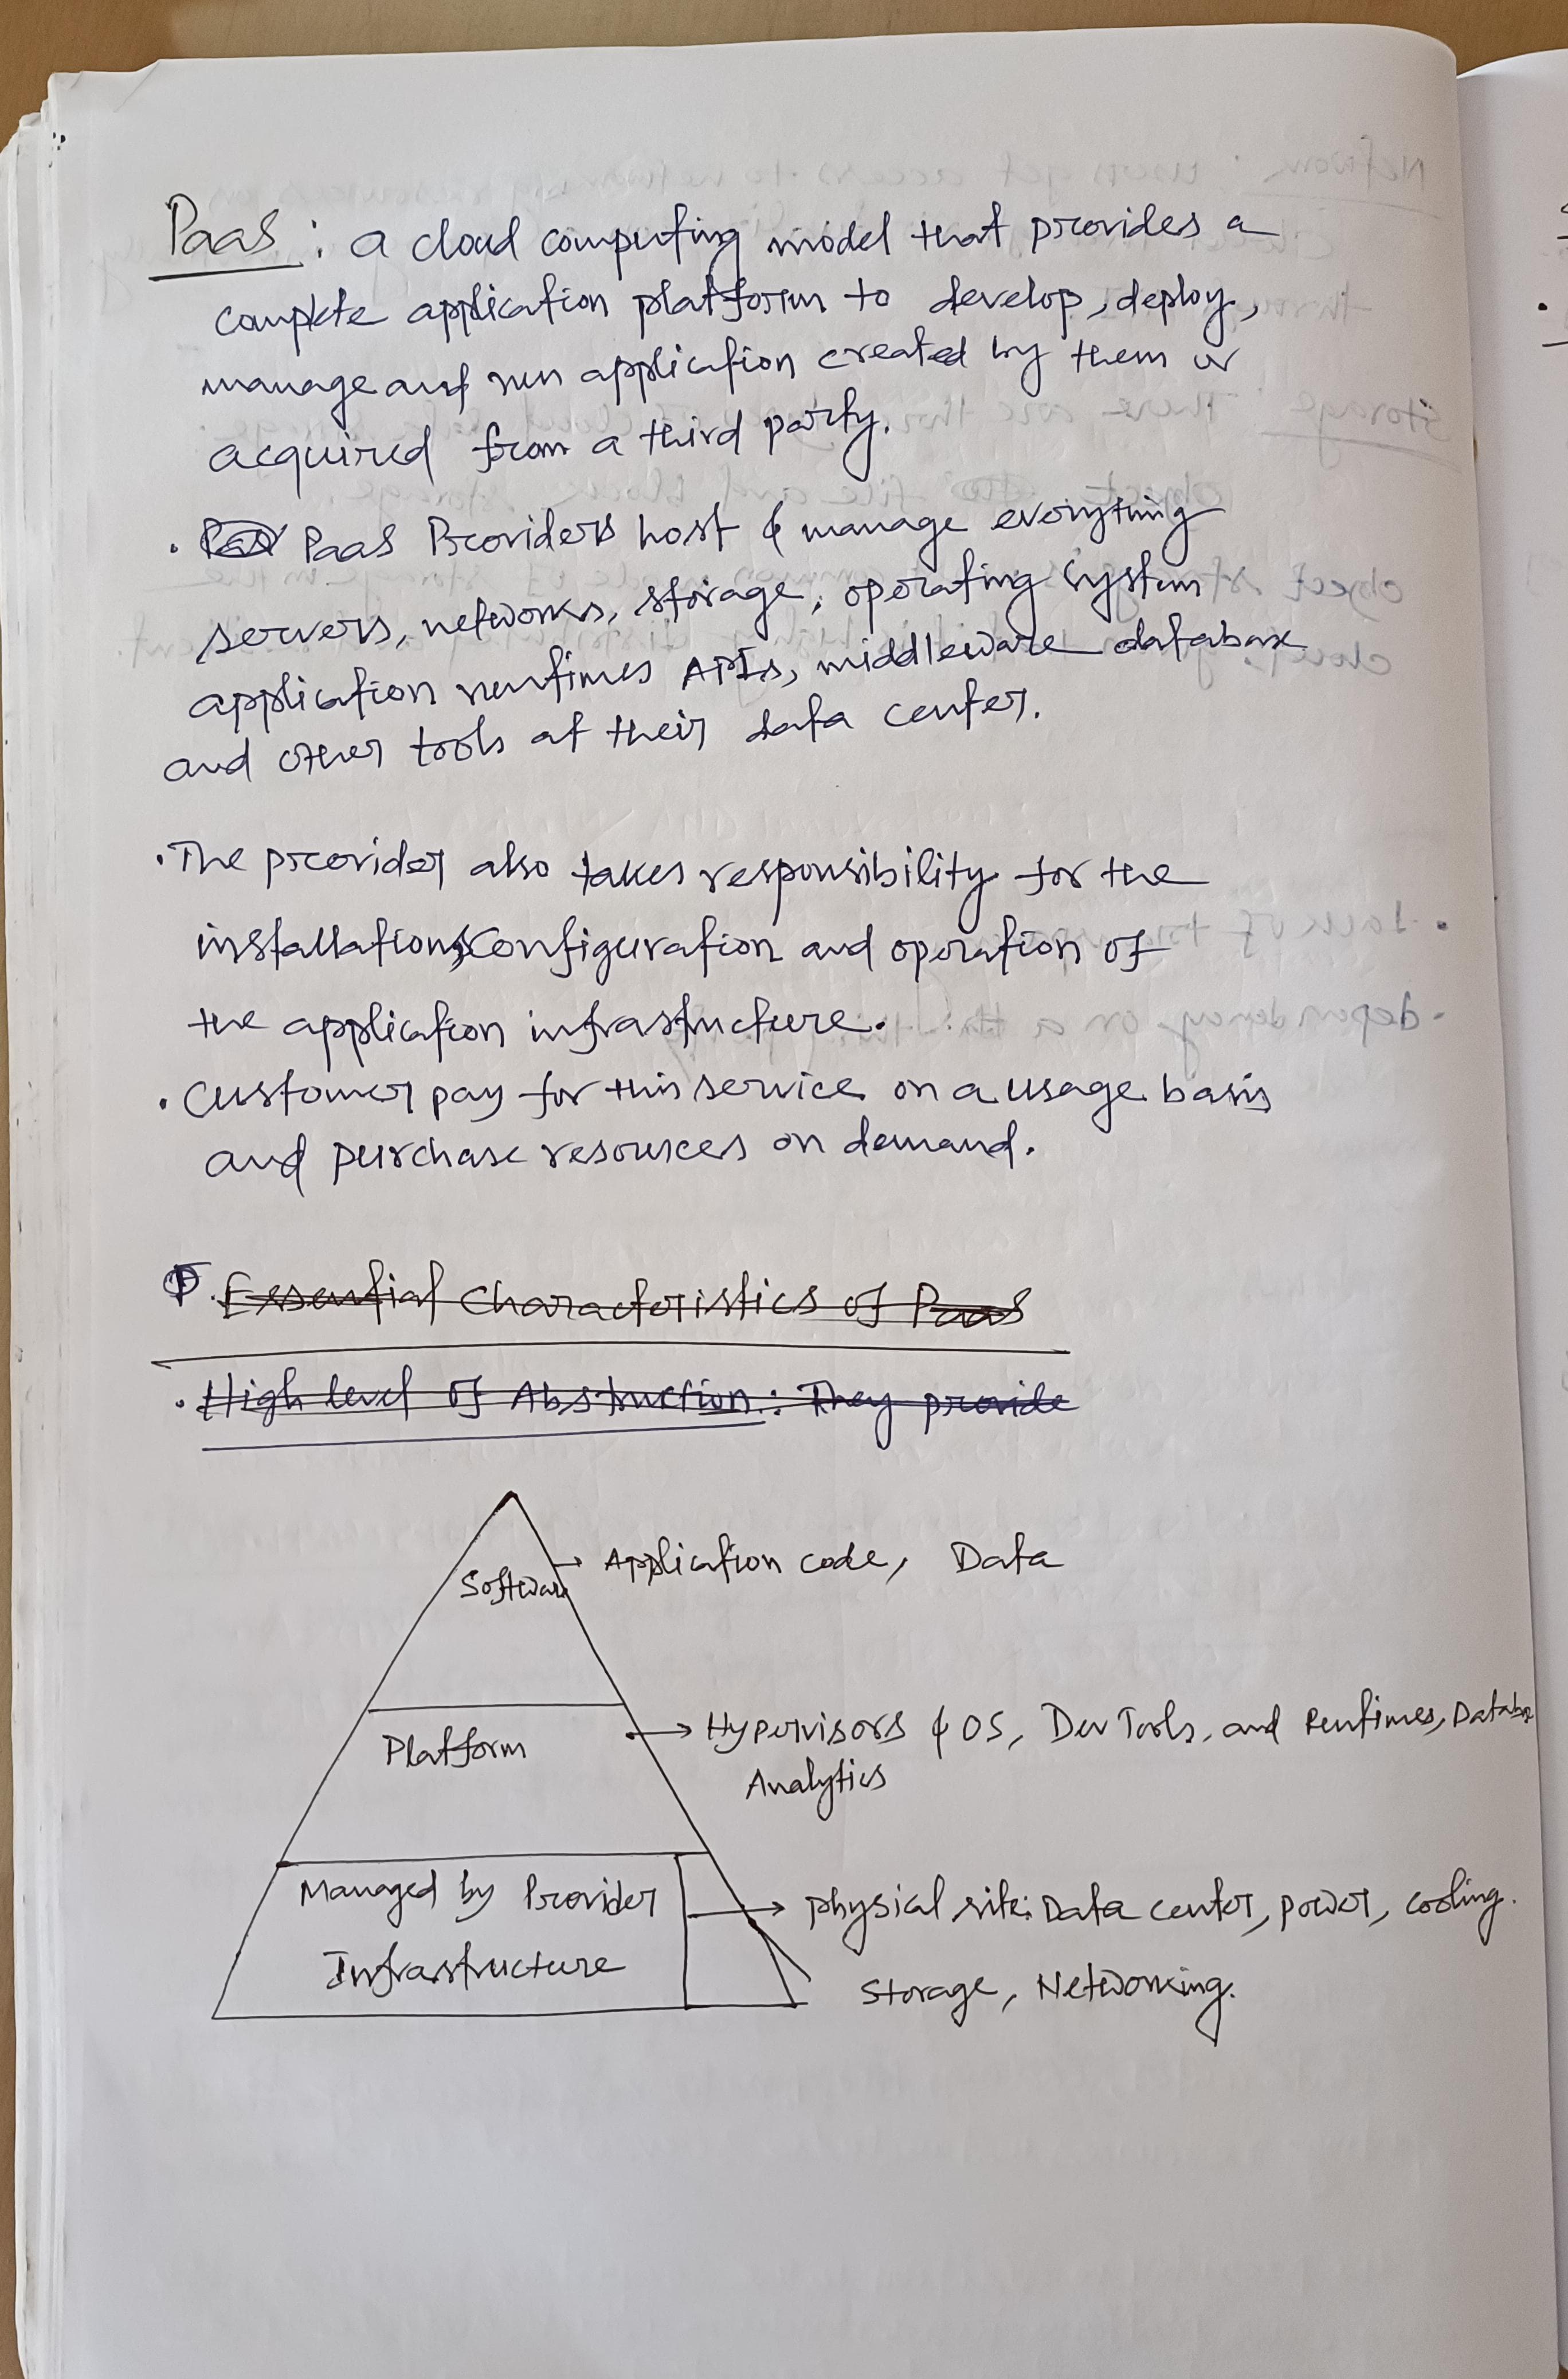 PaaS : a cloud computing model that provides a
complete application platform to develop, deploy,
manage and run application created by them or
acquired from a third party.
• PaaS Providers host & manage everything
servers, networks, storage, operating system
application runtimes APIs, middleware database
and other tools at their data center.
• The provider also takes responsibility for the
installation, configuration and operation of
the application infrastructure.
• Customer pay for this service on a usage basis
and purchase resources on demand.
Essential Characteristics of PaaS
• High level of Abstruction : They provide
Software → Application code, Data
Platform → Hypervisors & OS, Dev Tools, and Runtimes, Databa
Analytics
Managed by Provider → physical site: Data center, power, cooling.
Infrastructure Storage, Networking.